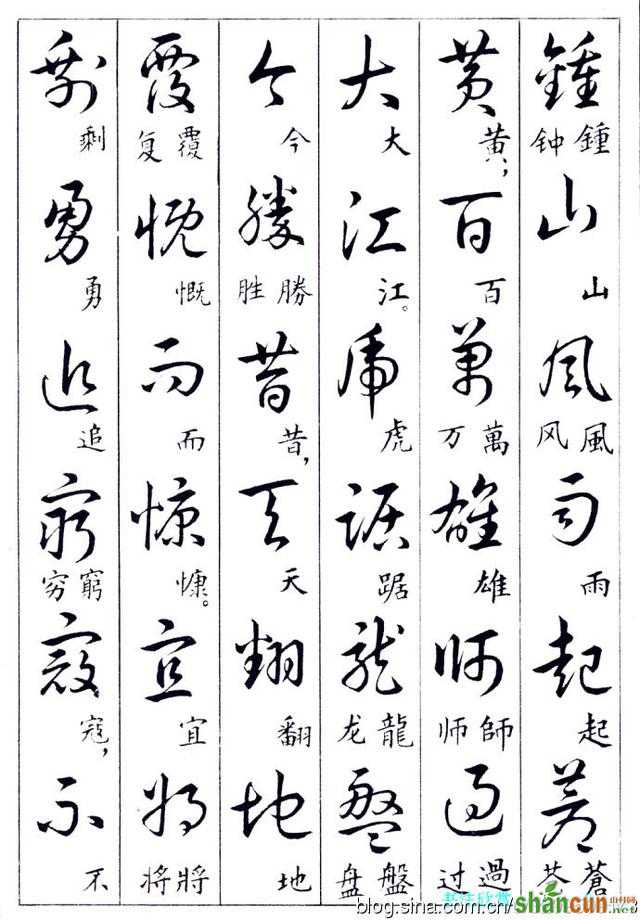 鍾 鍾 钟 山 山 風 風 风 雨 雨 起 起 蒼 蒼 苍
黄 黄, 百 百 萬 萬 万 雄 雄 師 師 师 過 過 过
大 大 江 江。 虎 虎 踞 踞 龍 龍 龙 盤 盤 盘
今 今 勝 勝 胜 昔 昔, 天 天 翻 翻 地 地
覆 覆 复 慨 慨 而 而 慷 慷。 宜 宜 將 將 将
剩 剩 勇 勇 追 追 窮 窮 穷 寇 寇, 不 不
shancun
.net
blog.sina.com.cn/